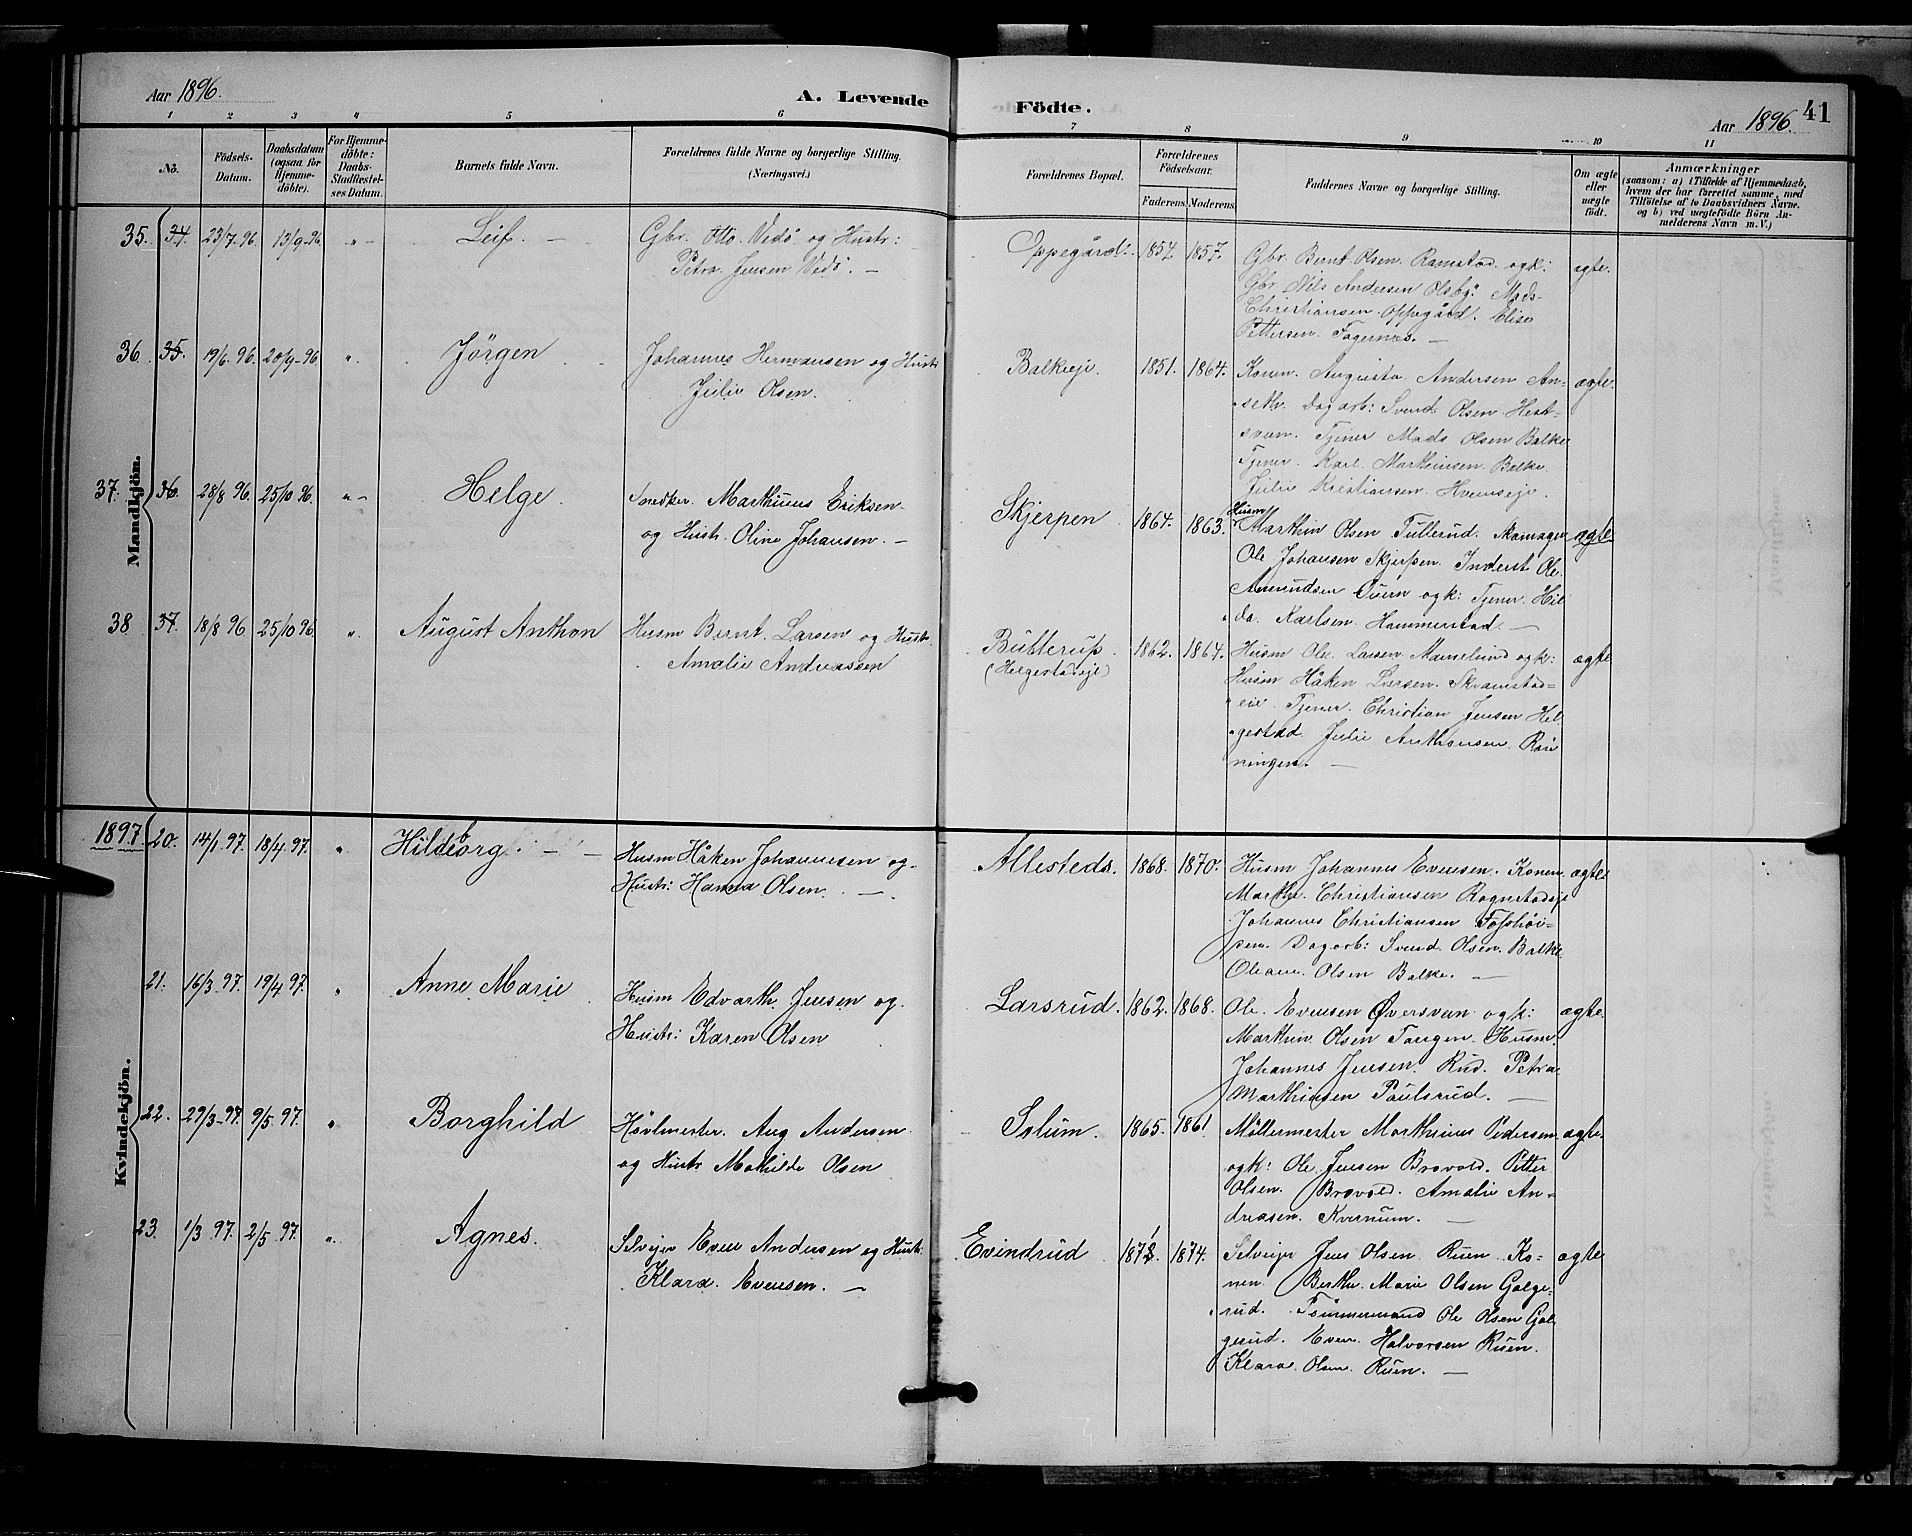 Aar 1896.
A. Levende Födte.
Aar 1896. 41
1 2 3 4 5 6 7 8 9 10 11
No. Födsels-Datum. Daabsdatum (ogsaa for Hjemmedöbte). For Hjemmedöbte: Daabs-Stadfæstelses Datum. Barnets fulde Navn. Forældrenes fulde Navne og borgerlige Stilling. (Næringsvei.) Forældrenes Bopæl. Forældrenes Födselsaar. Faderens. Moderens. Faddernes Navne og borgerlige Stilling. Om ægte eller uægte födt. Anmærkninger (saasom: a) i Tilfælde af Hjemmedaab, hvem der har forrettet samme, med Tilföielse af to Daabsvidners Navne, og b) ved uægtefödte Börn Anmelderens Navn m. V.)
Mandkjön.
35. 34. 23/7 96. 13/9-96. "- Leif. — Gbr. Otto Vedö og Hustr: Oppegård. 1854. 1857. Gbr. Bernt Olsen Ramstad ogk: ægte.
Petra Jensen Vedö. —
Gbr Nils Andersen Olsby. Mads
Christiansen Oppegård. Elise
Pettersen. Fagernæs. —
36. 35. 19/6. 96. 20/9-96 ". Jörgen Johannes Hermansen og Hustr Balkeeje. 1851. 1864. Konen Augusta Andersen An- ægte.
Julie Olsen.
seth. Dagarb: Svend Olsen Hest-
svem. Tjener Mads Olsen Balke
Tjener. Karl Marthinsen. Balke.
Julie Kristiansen. Hvemseje.
37. 36. 28/8 96. 25/10 96. "- Helge Snedker. Marthinus Eriksen Skjerpen 1864. 1863. Husm Marthin Olsen Tullerud. Skomager ægte
og Hustr. Oline Johansen. —
Ole Johansen Skjerpen. Inderst Ole
Amundsen ogk: Tjener. Hil-
da Karlsen Hammerstad. —
38 37. 18/8 96 25/10 96. ". August Anthon Husm Bernt Larsen og Hustr. Butterup. 1862. 1864. Husm Ole Larsen Mamelund ogk: ægte
Amalie Andreassen
(Helgestadeje)
Husm Håken Larsen. Skramstad-
eie. Tjener. Christian Jensen Hel-
gestad. Julie Anthonsen Rön-
ningen. —
1897
Kvindekjön.
20. 14/1 97. 18/4 97. ". Hildeborg. — Husm Håken Johannesen og Allesteds. 1868. 1870. Husm Johannes Evensen. Konen ægte
Hustr: Hanna Olsen. —
Marthe Christiansen Rognstadeje
Johannes Christiansen Fosshöi-
Dagarb: Svend Olsen. Balke
Oleane Olsen Balke. —
21. 16/3 97. 19/4 97. " Anne Marie Husm Edvarth Jensen og Larsrud. 1862. 1868. Ole Evensen Øversveen ogk: ægte.
Hustr: Karen Olsen
Marthin Olsen Tangen. Husm
Johannes Jensen. Rud. Petra
Marthinsen Paulsrud. —
22. 29/3-97. 9/5 97. " Borghild Hövlmester. Aug Andersen Solum. 1865. 1861 Möllermester Marthinus Pedersen ægte.
og Hustr Mathilde Olsen
ogk: Ole Jensen Brovold. Petter
Olsen. Brovold. Amalie An-
dreasen. Kvernum. —
23. 1/3 97. 2/5 97. ". Agnes. Selvejer Even Andersen og Hustr: Evindrud 1874. Selvejer Jens Olsen Ruen Ko- ægte
Klara Evensen. —
nen Berthe Marie Olsen Galge-
rud. Tömmermand Ole Olsen Gal-
gerud. Even Halvorsen Ruen.
Klara Olsen Ruen. —